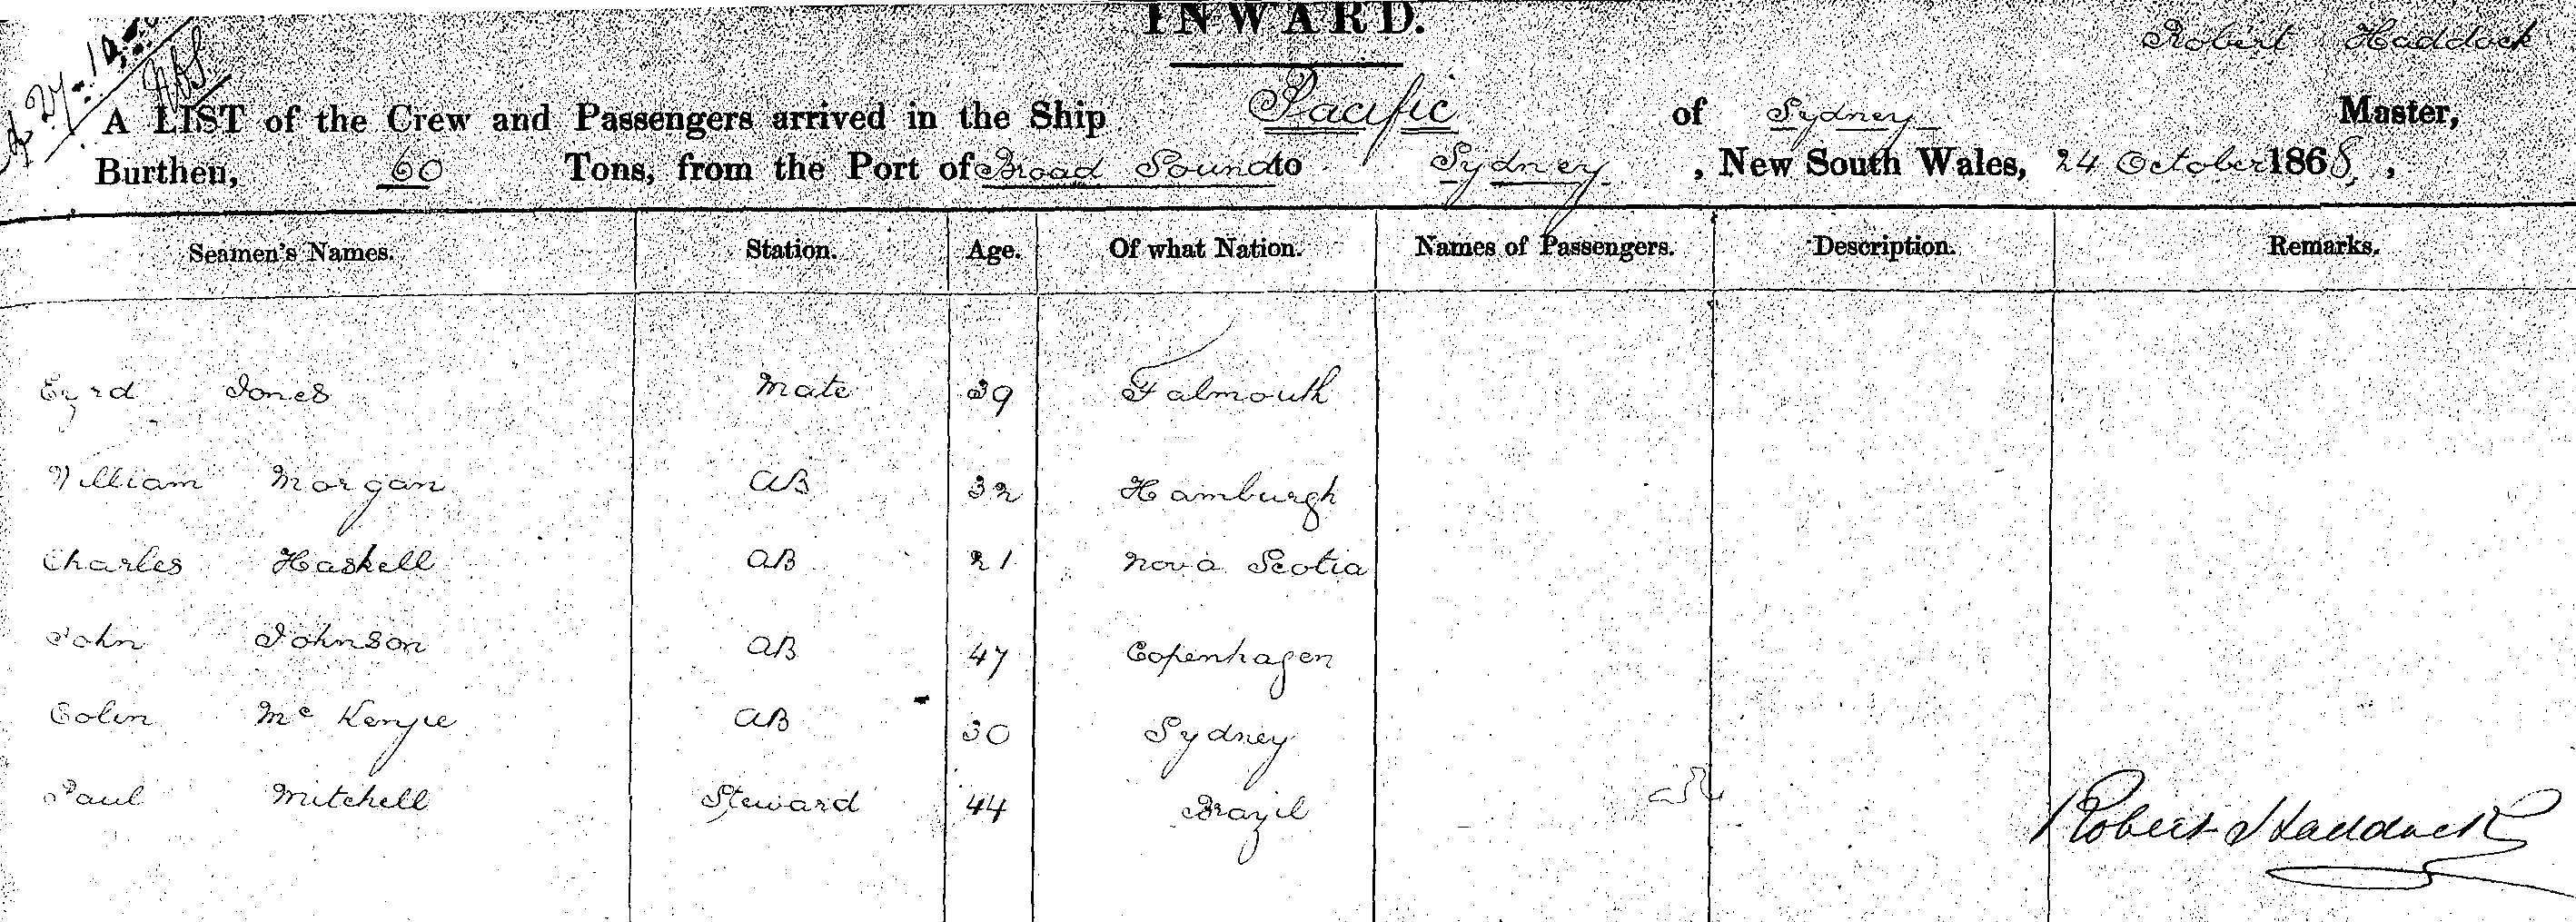 INWARD.
Robert Haddock
A LIST of the Crew and Passengers arrived in the Ship Pacific of Sydney Master,
Burthen, 60 Tons, from the Port of Broad Sound to Sydney, New South Wales, 24 October 1868,
Seamen's Names. Station. Age. Of what Nation. Names of Passengers. Description. Remarks.
Jones Mate 39 Falmouth
William Morgan AB 32 Hamburgh
Charles Haskell AB 21 Nova Scotia
John Johnson AB 47 Copenhagen
Colin McKenzie AB 30 Sydney
Paul Mitchell Steward 44 Brazil
Robert Haddock